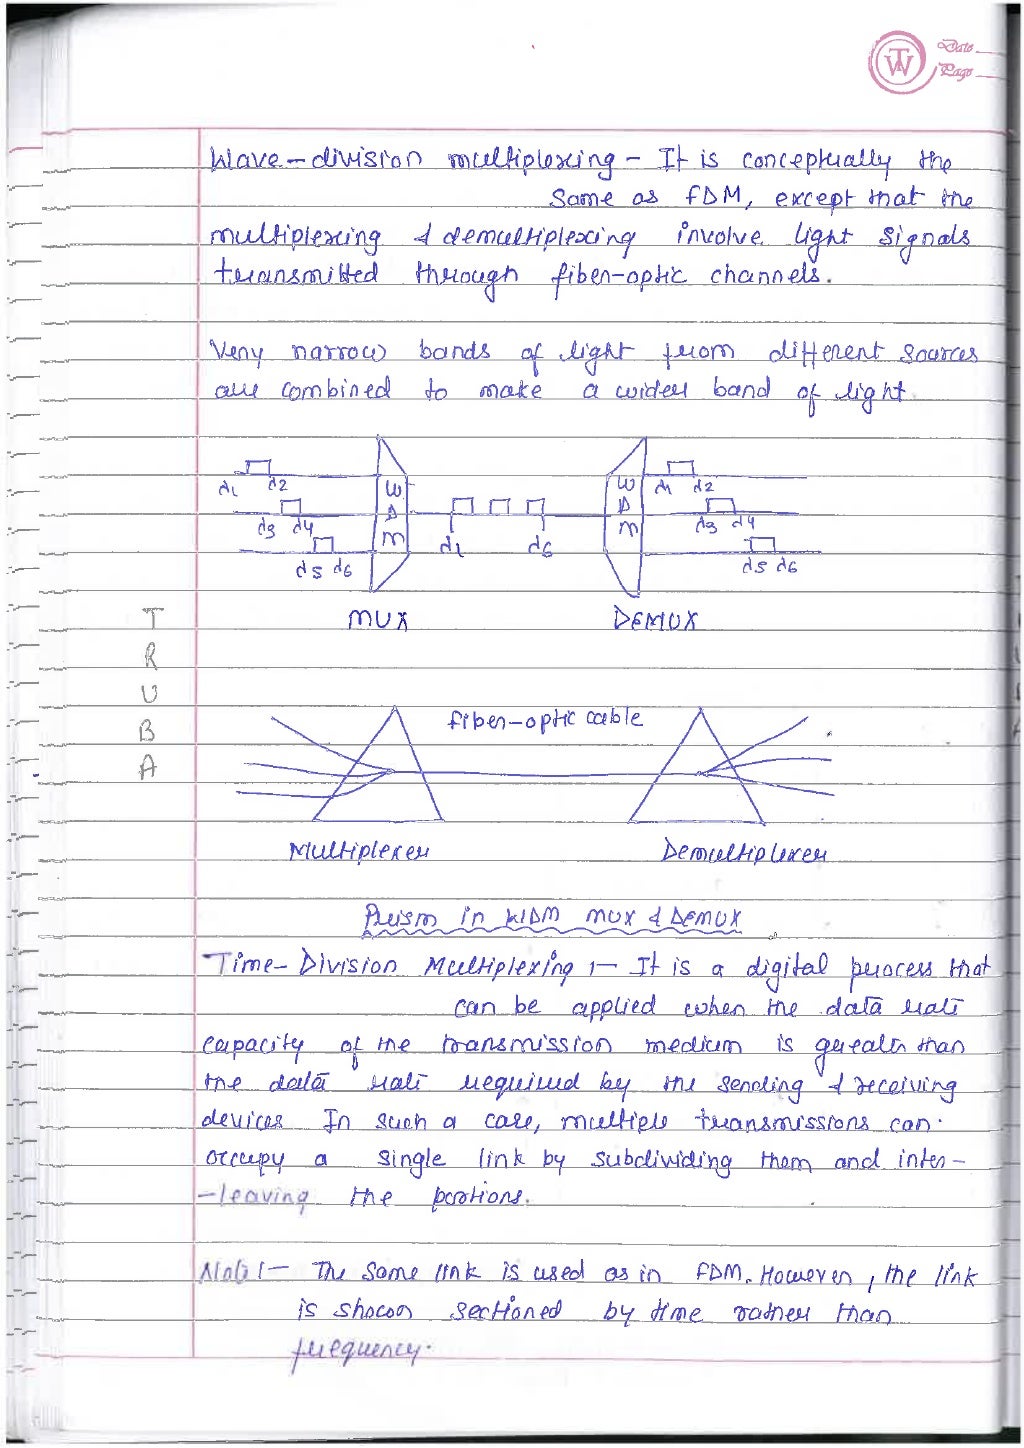 TW Date
Page
Wave-division multiplexing - It is conceptually the
same as FDM, except that the
multiplexing & demultiplexing involve light signals
transmitted through fiber-optic channels.
Very narrow bands of light from different sources
are combined to make a wider band of light
d1 d2
d3 d4
d5 d6
WDM
d1 d6
WDM
d1 d2
d3 d4
d5 d6
MUX DEMUX
TRUBA
fiber-optic cable
Multiplexer Demultiplexer
Prism in WDM MUX & DEMUX
Time-Division Multiplexing :- It is a digital process that
can be applied when the data rate
capacity of the transmission medium is greater than
the data rate required by the sending & receiving
devices In such a case, multiple transmissions can
occupy a single link by subdividing them and inter-
-leaving the portions.
Note :- The same link is used as in FDM. However, the link
is shown sectioned by time rather than
frequency.